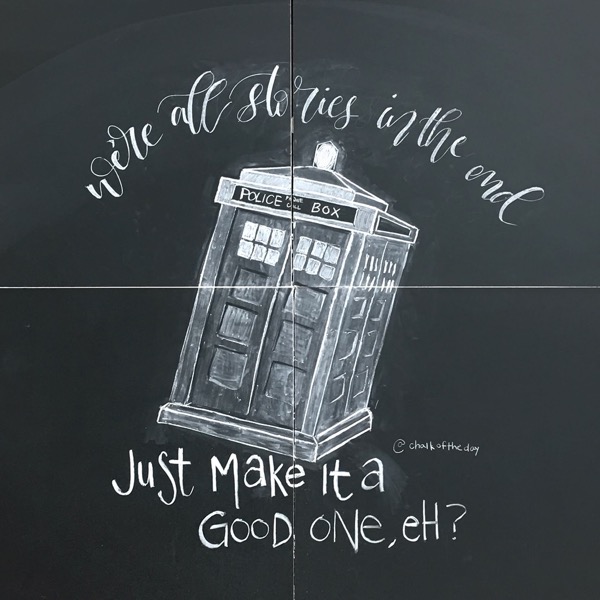 we're all stories in the end
POLICE PUBLIC CALL BOX
@chalkoftheday
Just Make it a
GOOD ONE, eH?